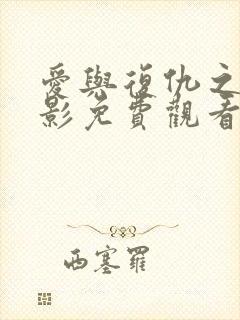 愛與復仇之
影免費觀看
西塞羅